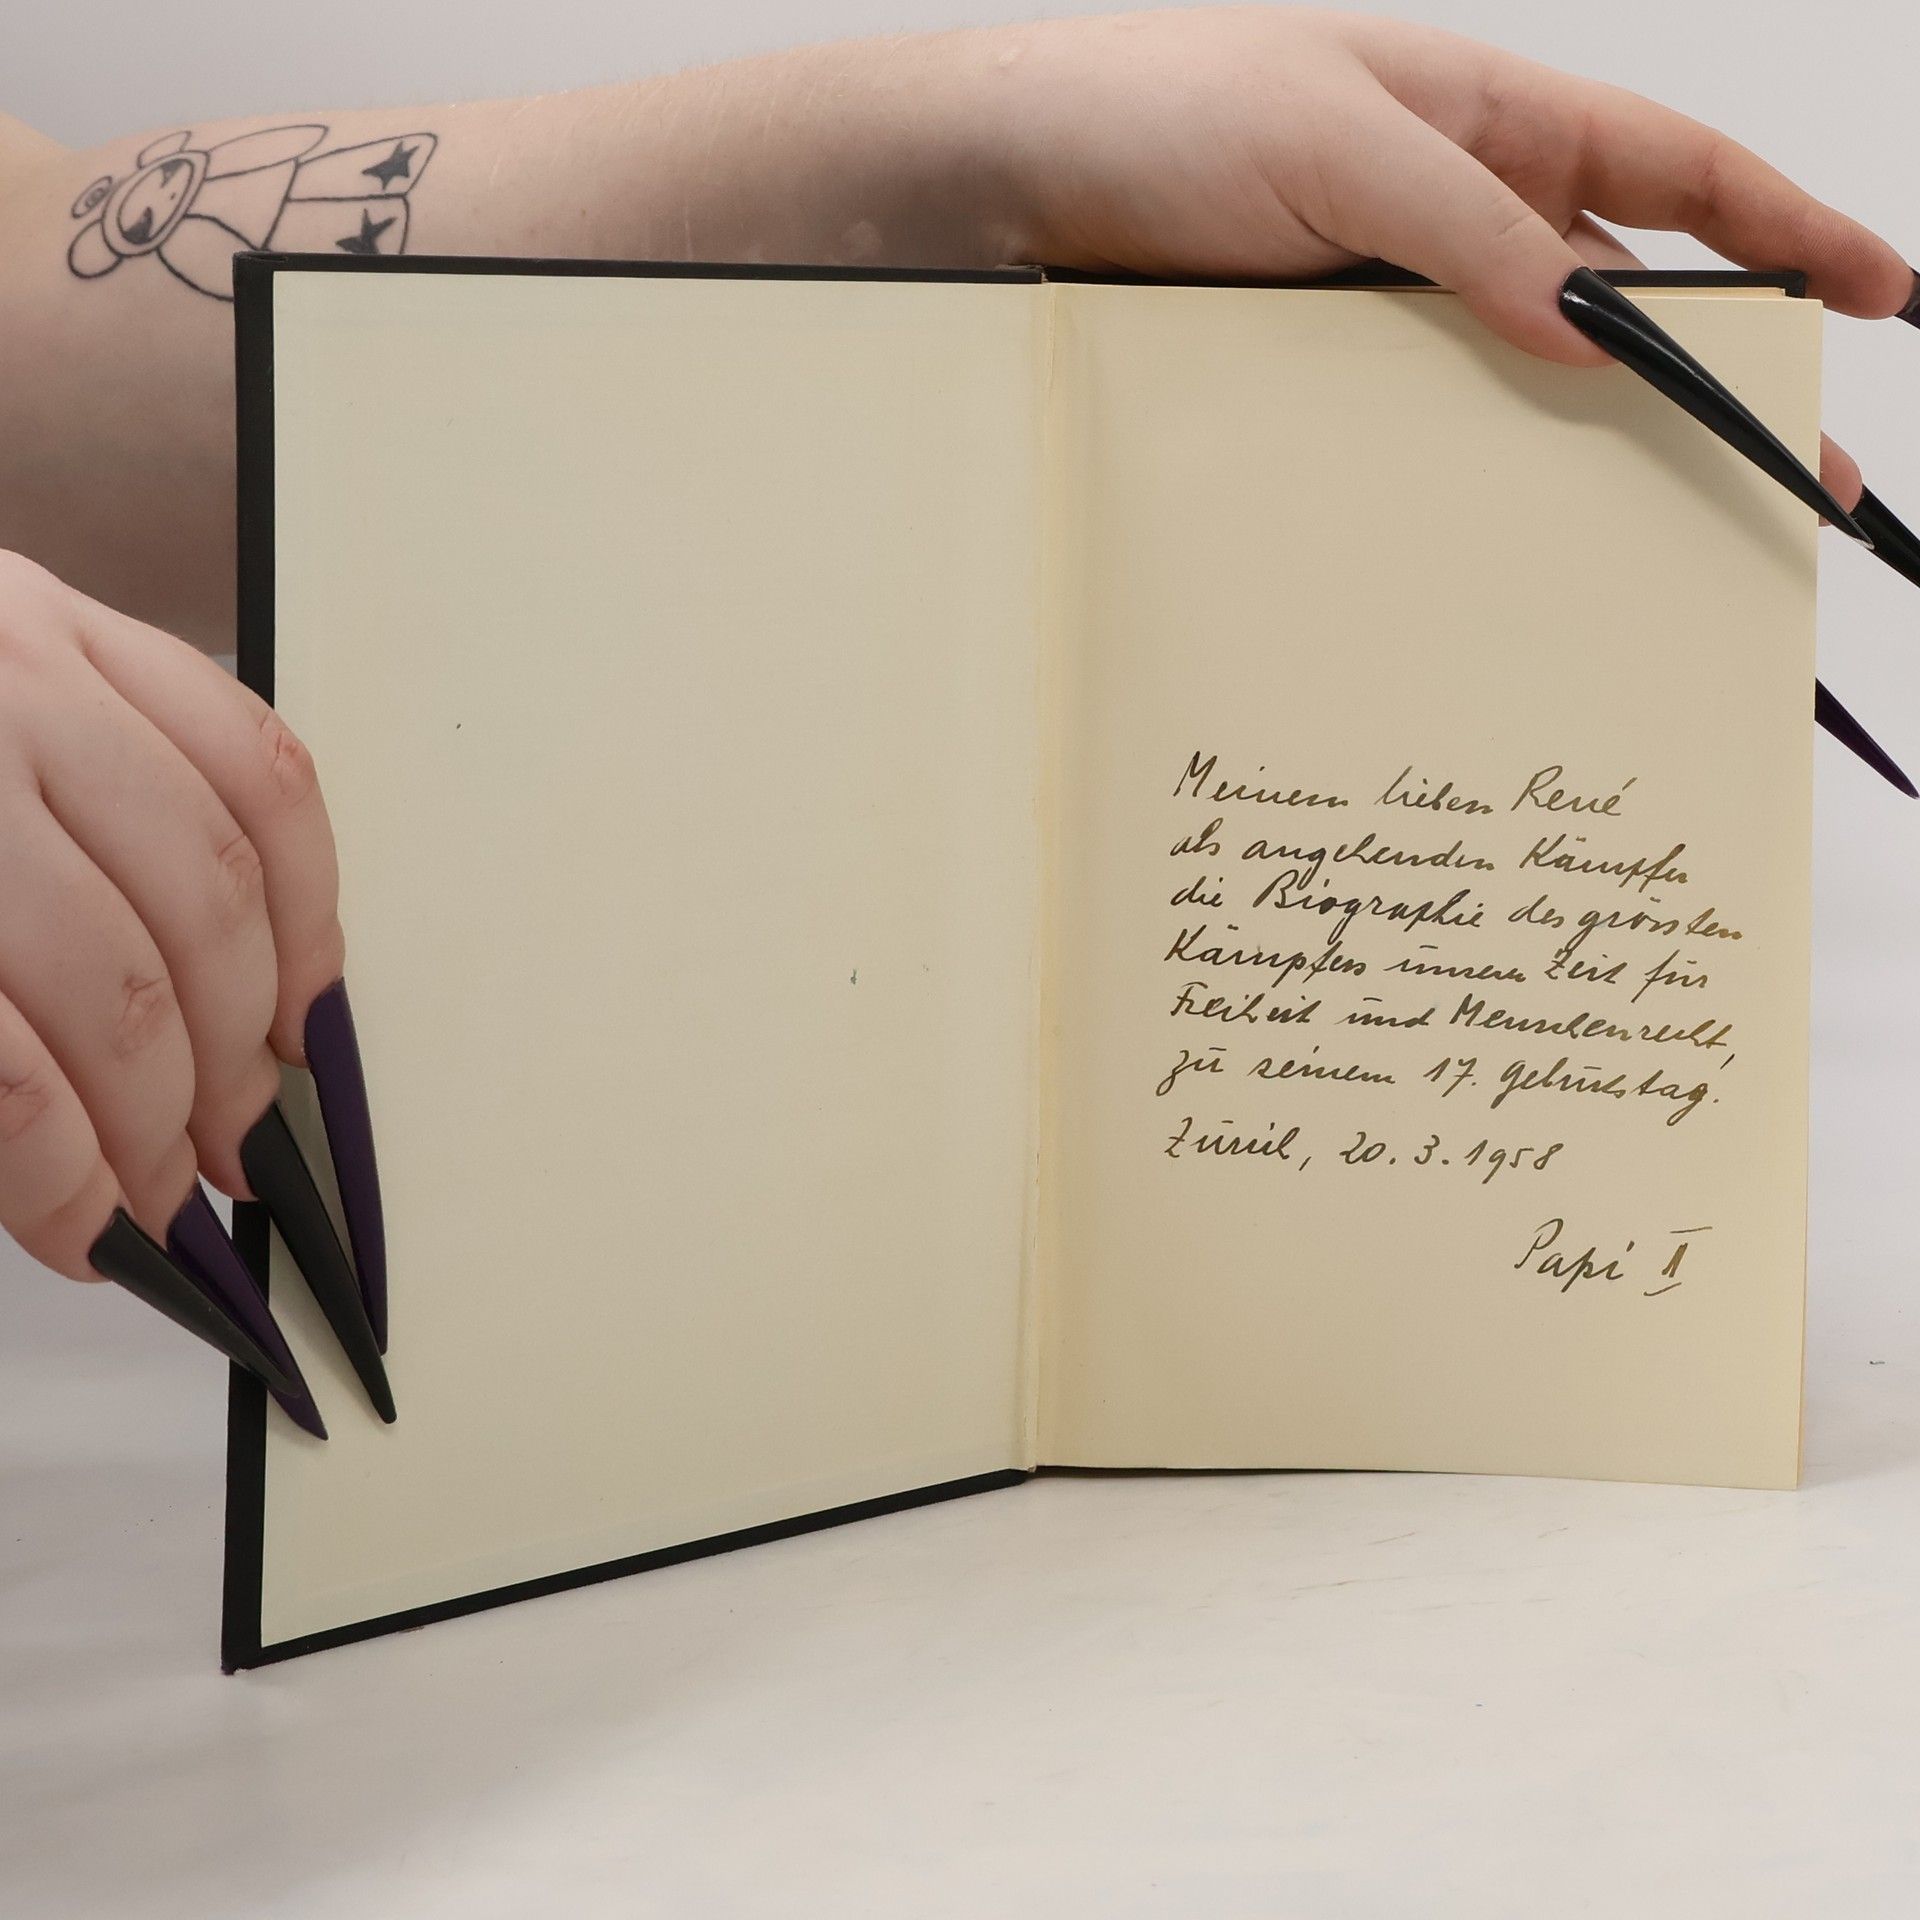 Meinem lieben René
als angehenden Kämpfer
die Biographie des grössten
Kämpfers unserer Zeit für
Freiheit und Menschenrecht,
zu seinem 17. Geburtstag.
Zürich, 20. 3. 1958
Papi II